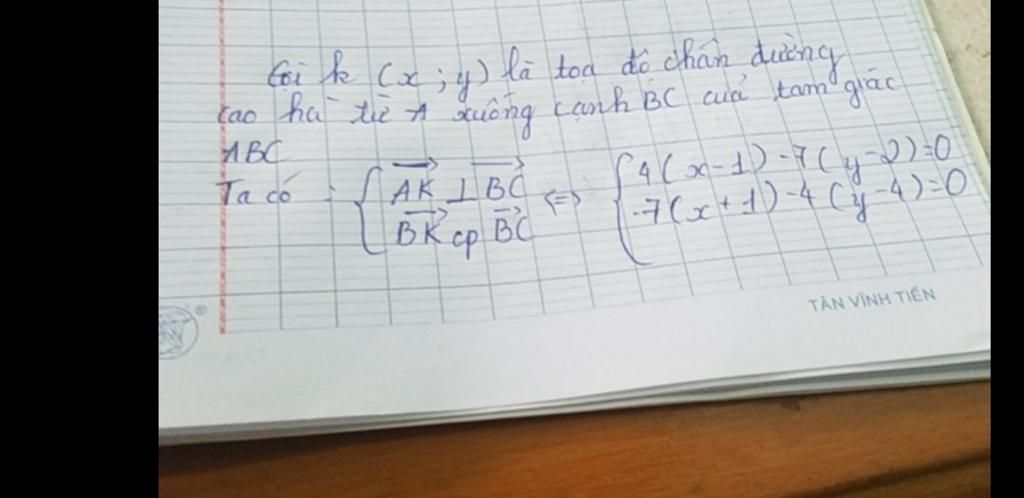 Gọi k (x ; y) là tọa độ chân đường
cao hạ từ A xuống cạnh BC của tam giác
ABC
Ta có : { AK ⊥ BC <=> { 4(x-1) -7(y-2)=0
BK cp BC -7(x+1)-4(y-4)=0
TÂN VĨNH TIẾN
®